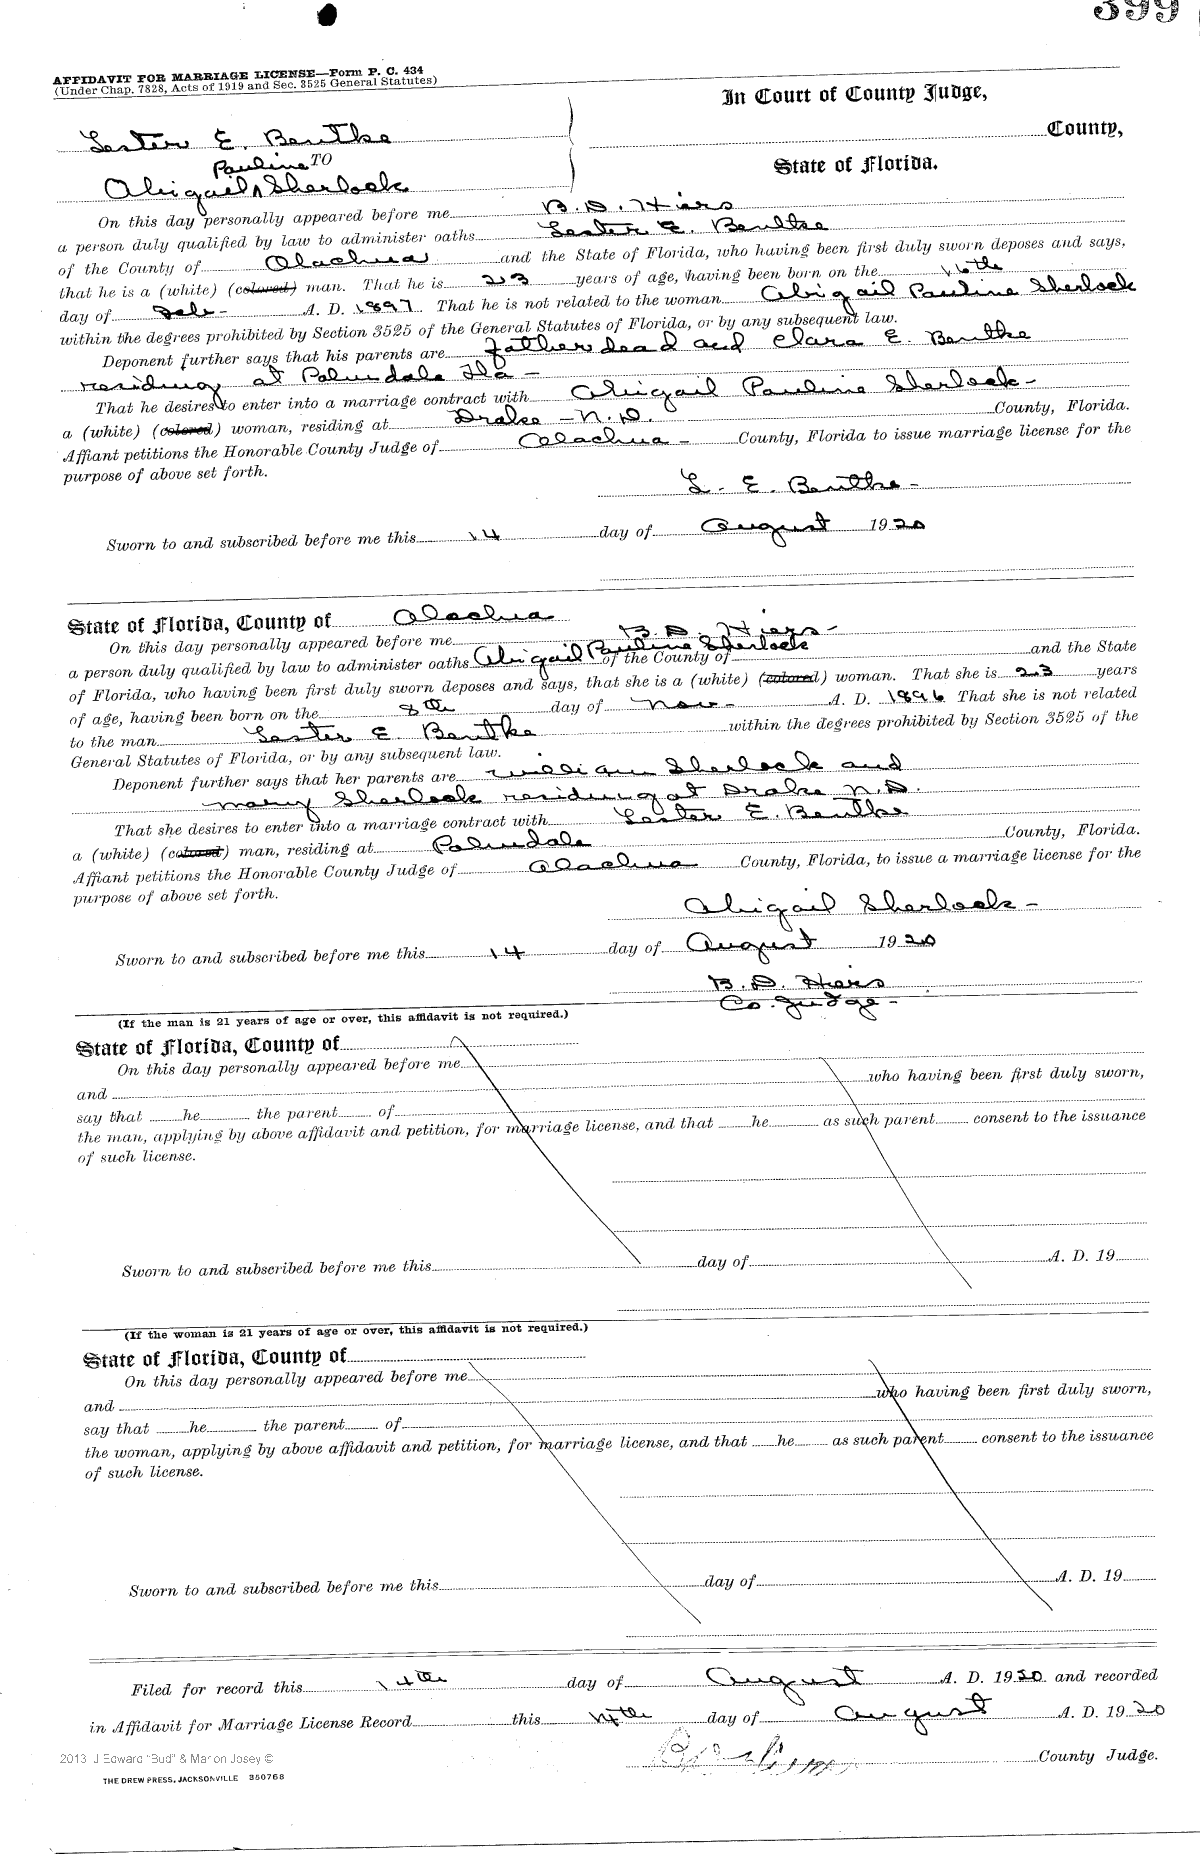 399
AFFIDAVIT FOR MARRIAGE LICENSE—Form P. C. 434
(Under Chap. 7828, Acts of 1919 and Sec. 3525 General Statutes)
In Court of County Judge,
Lester E. Beutke
County,
Pauline TO
State of Florida.
Abigail ^ Sherlock
On this day personally appeared before me B. D. Hiers
a person duly qualified by law to administer oaths Lester E. Beutke
of the County of Alachua and the State of Florida, who having been first duly sworn deposes and says,
that he is a (white) (colored) man. That he is 23 years of age, having been born on the 16th
day of Feb- A. D. 1897 That he is not related to the woman Abigail Pauline Sherlock
within the degrees prohibited by Section 3525 of the General Statutes of Florida, or by any subsequent law.
Deponent further says that his parents are father dead and Clara E. Beutke
residing at Palmdale Fla -
That he desires to enter into a marriage contract with Abigail Pauline Sherlock-
a (white) (colored) woman, residing at Drake - N. D. County, Florida.
Affiant petitions the Honorable County Judge of Alachua - County, Florida to issue marriage license for the
purpose of above set forth.
L. E. Beutke -
Sworn to and subscribed before me this 14 day of August 1920
State of Florida, County of Alachua
On this day personally appeared before me B. D. Hiers -
a person duly qualified by law to administer oaths Abigail Pauline Sherlock of the County of and the State
of Florida, who having been first duly sworn deposes and says, that she is a (white) (colored) woman. That she is 23 years
of age, having been born on the 8th day of Nov- A. D. 1896 That she is not related
to the man Lester E. Beutke within the degrees prohibited by Section 3525 of the
General Statutes of Florida, or by any subsequent law.
Deponent further says that her parents are William Sherlock and
Mary Sherlock residing at Drake N. D.
That she desires to enter into a marriage contract with Lester E. Beutke
a (white) (colored) man, residing at Palmdale County, Florida.
Affiant petitions the Honorable County Judge of Alachua County, Florida, to issue a marriage license for the
purpose of above set forth.
Abigail Sherlock -
Sworn to and subscribed before me this 14 day of August 1920
B. D. Hiers
Co. Judge -
(If the man is 21 years of age or over, this affidavit is not required.)
State of Florida, County of
On this day personally appeared before me
and who having been first duly sworn,
say that he the parent of
the man, applying by above affidavit and petition, for marriage license, and that he as such parent consent to the issuance
of such license.
Sworn to and subscribed before me this day of A. D. 19
(If the woman is 21 years of age or over, this affidavit is not required.)
State of Florida, County of
On this day personally appeared before me
and who having been first duly sworn,
say that he the parent of
the woman, applying by above affidavit and petition, for marriage license, and that he as such parent consent to the issuance
of such license.
Sworn to and subscribed before me this day of A. D. 19
Filed for record this 14th day of August A. D. 1920 and recorded
in Affidavit for Marriage License Record this 14th day of August A. D. 1920
County Judge.
2013 J Edward "Bud" & Marion Josey ©
THE DREW PRESS, JACKSONVILLE 350768